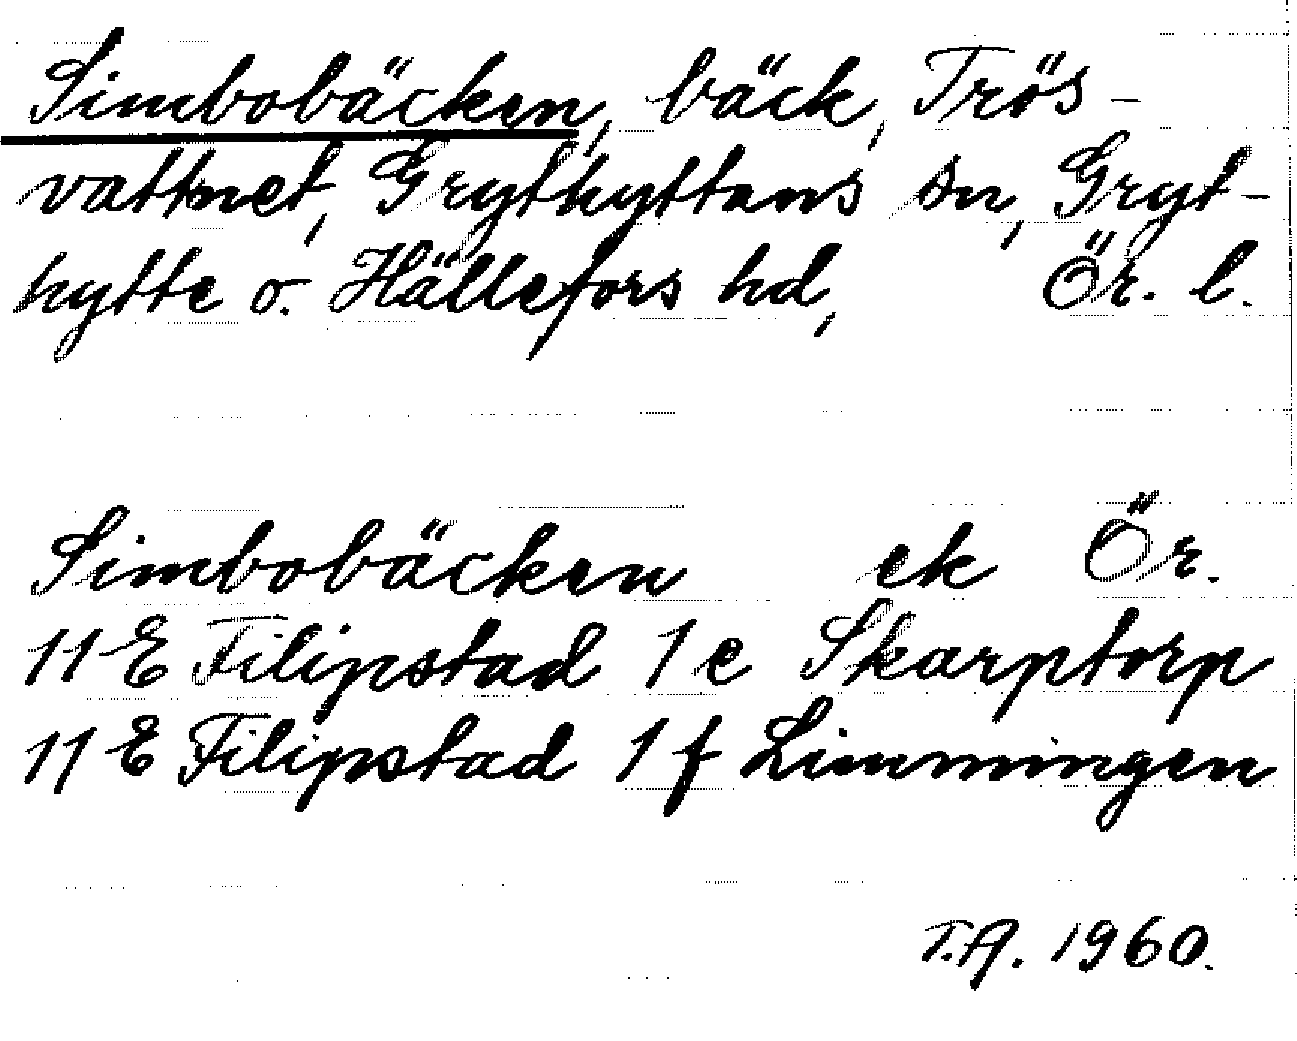 Simbobäcken, bäck, Trös-
vattnet, Grythyttans sn, Gryt-
hytte o. Hällefors hd, Ör. l.
Simbobäcken ek Ör.
11 E Filipstad 1 e Skarptorp
11 E Filipstad 1 f Limmingen
T.A. 1960.